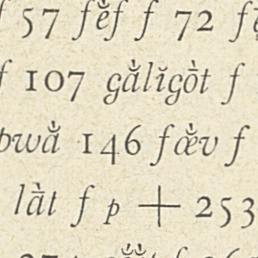 57 fĕ̀f f 72
f 107 gằlĭgòt f
146 fæ̆̀v f
làt f p + 253